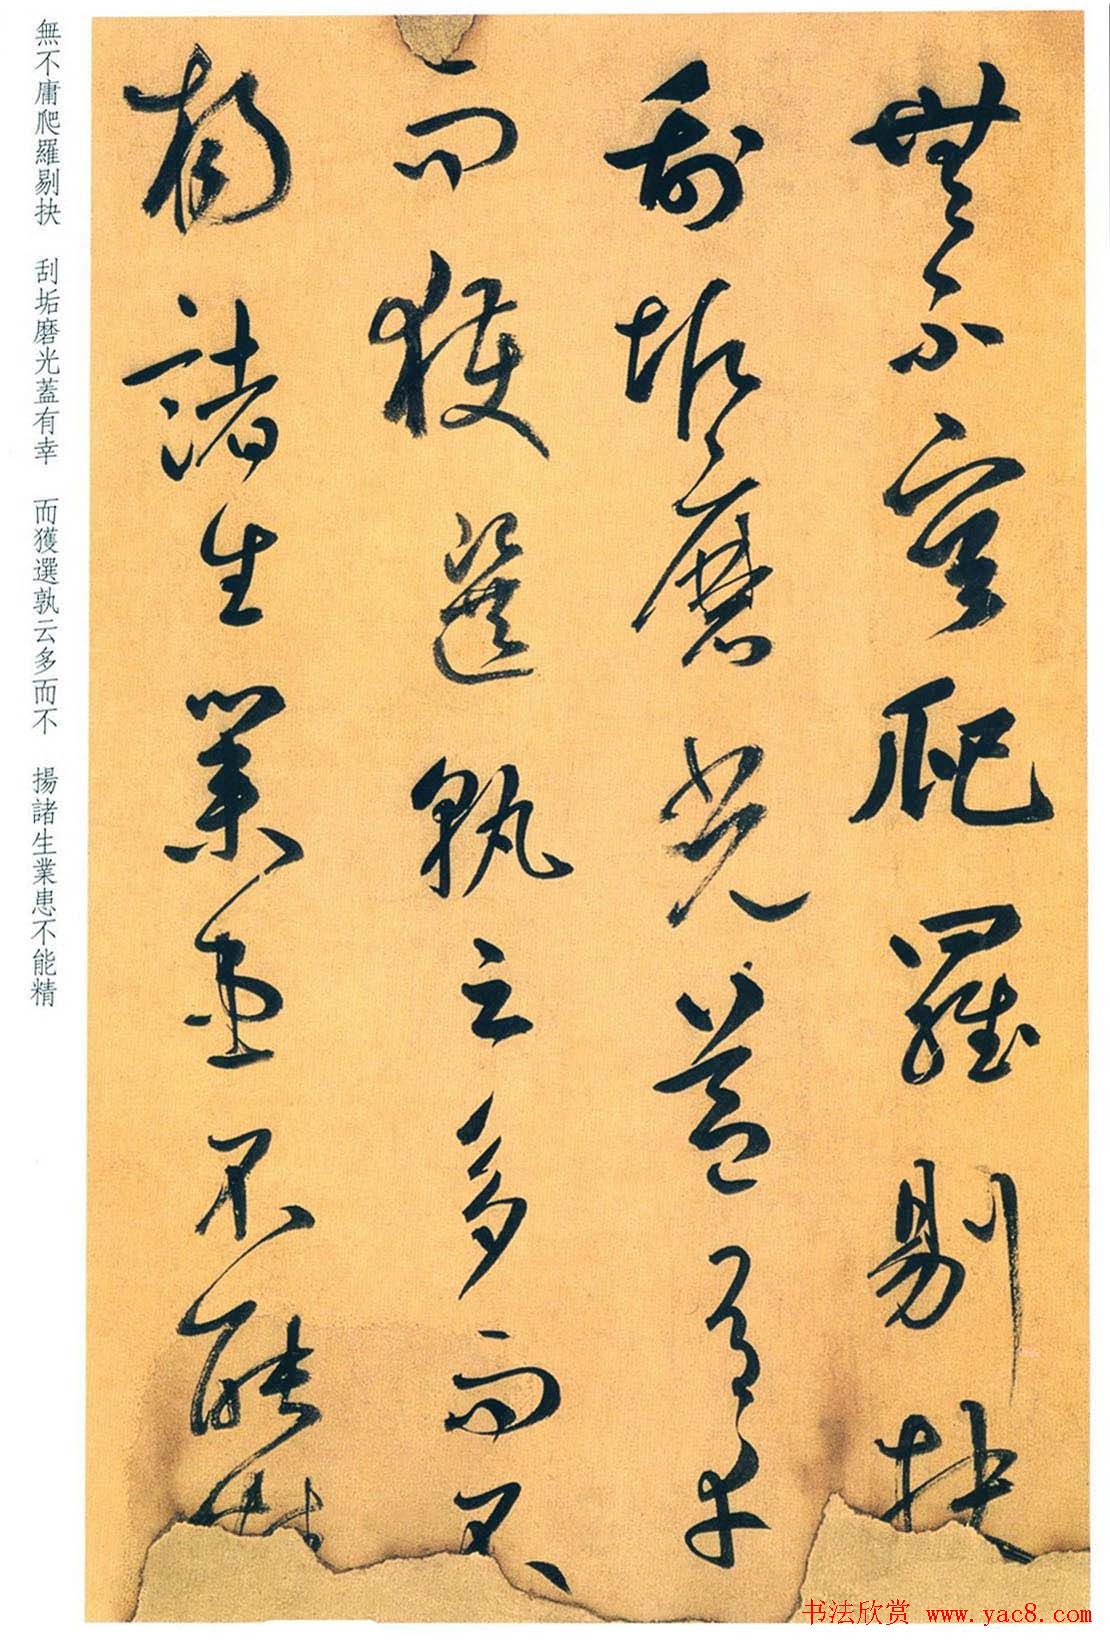 無不庸爬羅剔抉
刮垢磨光蓋有幸
而獲選孰云多而不
揚諸生業患不能精
無不庸爬羅剔抉 刮垢磨光蓋有幸 而獲選孰云多而不 揚諸生業患不能精
书法欣赏 www.yac8.com